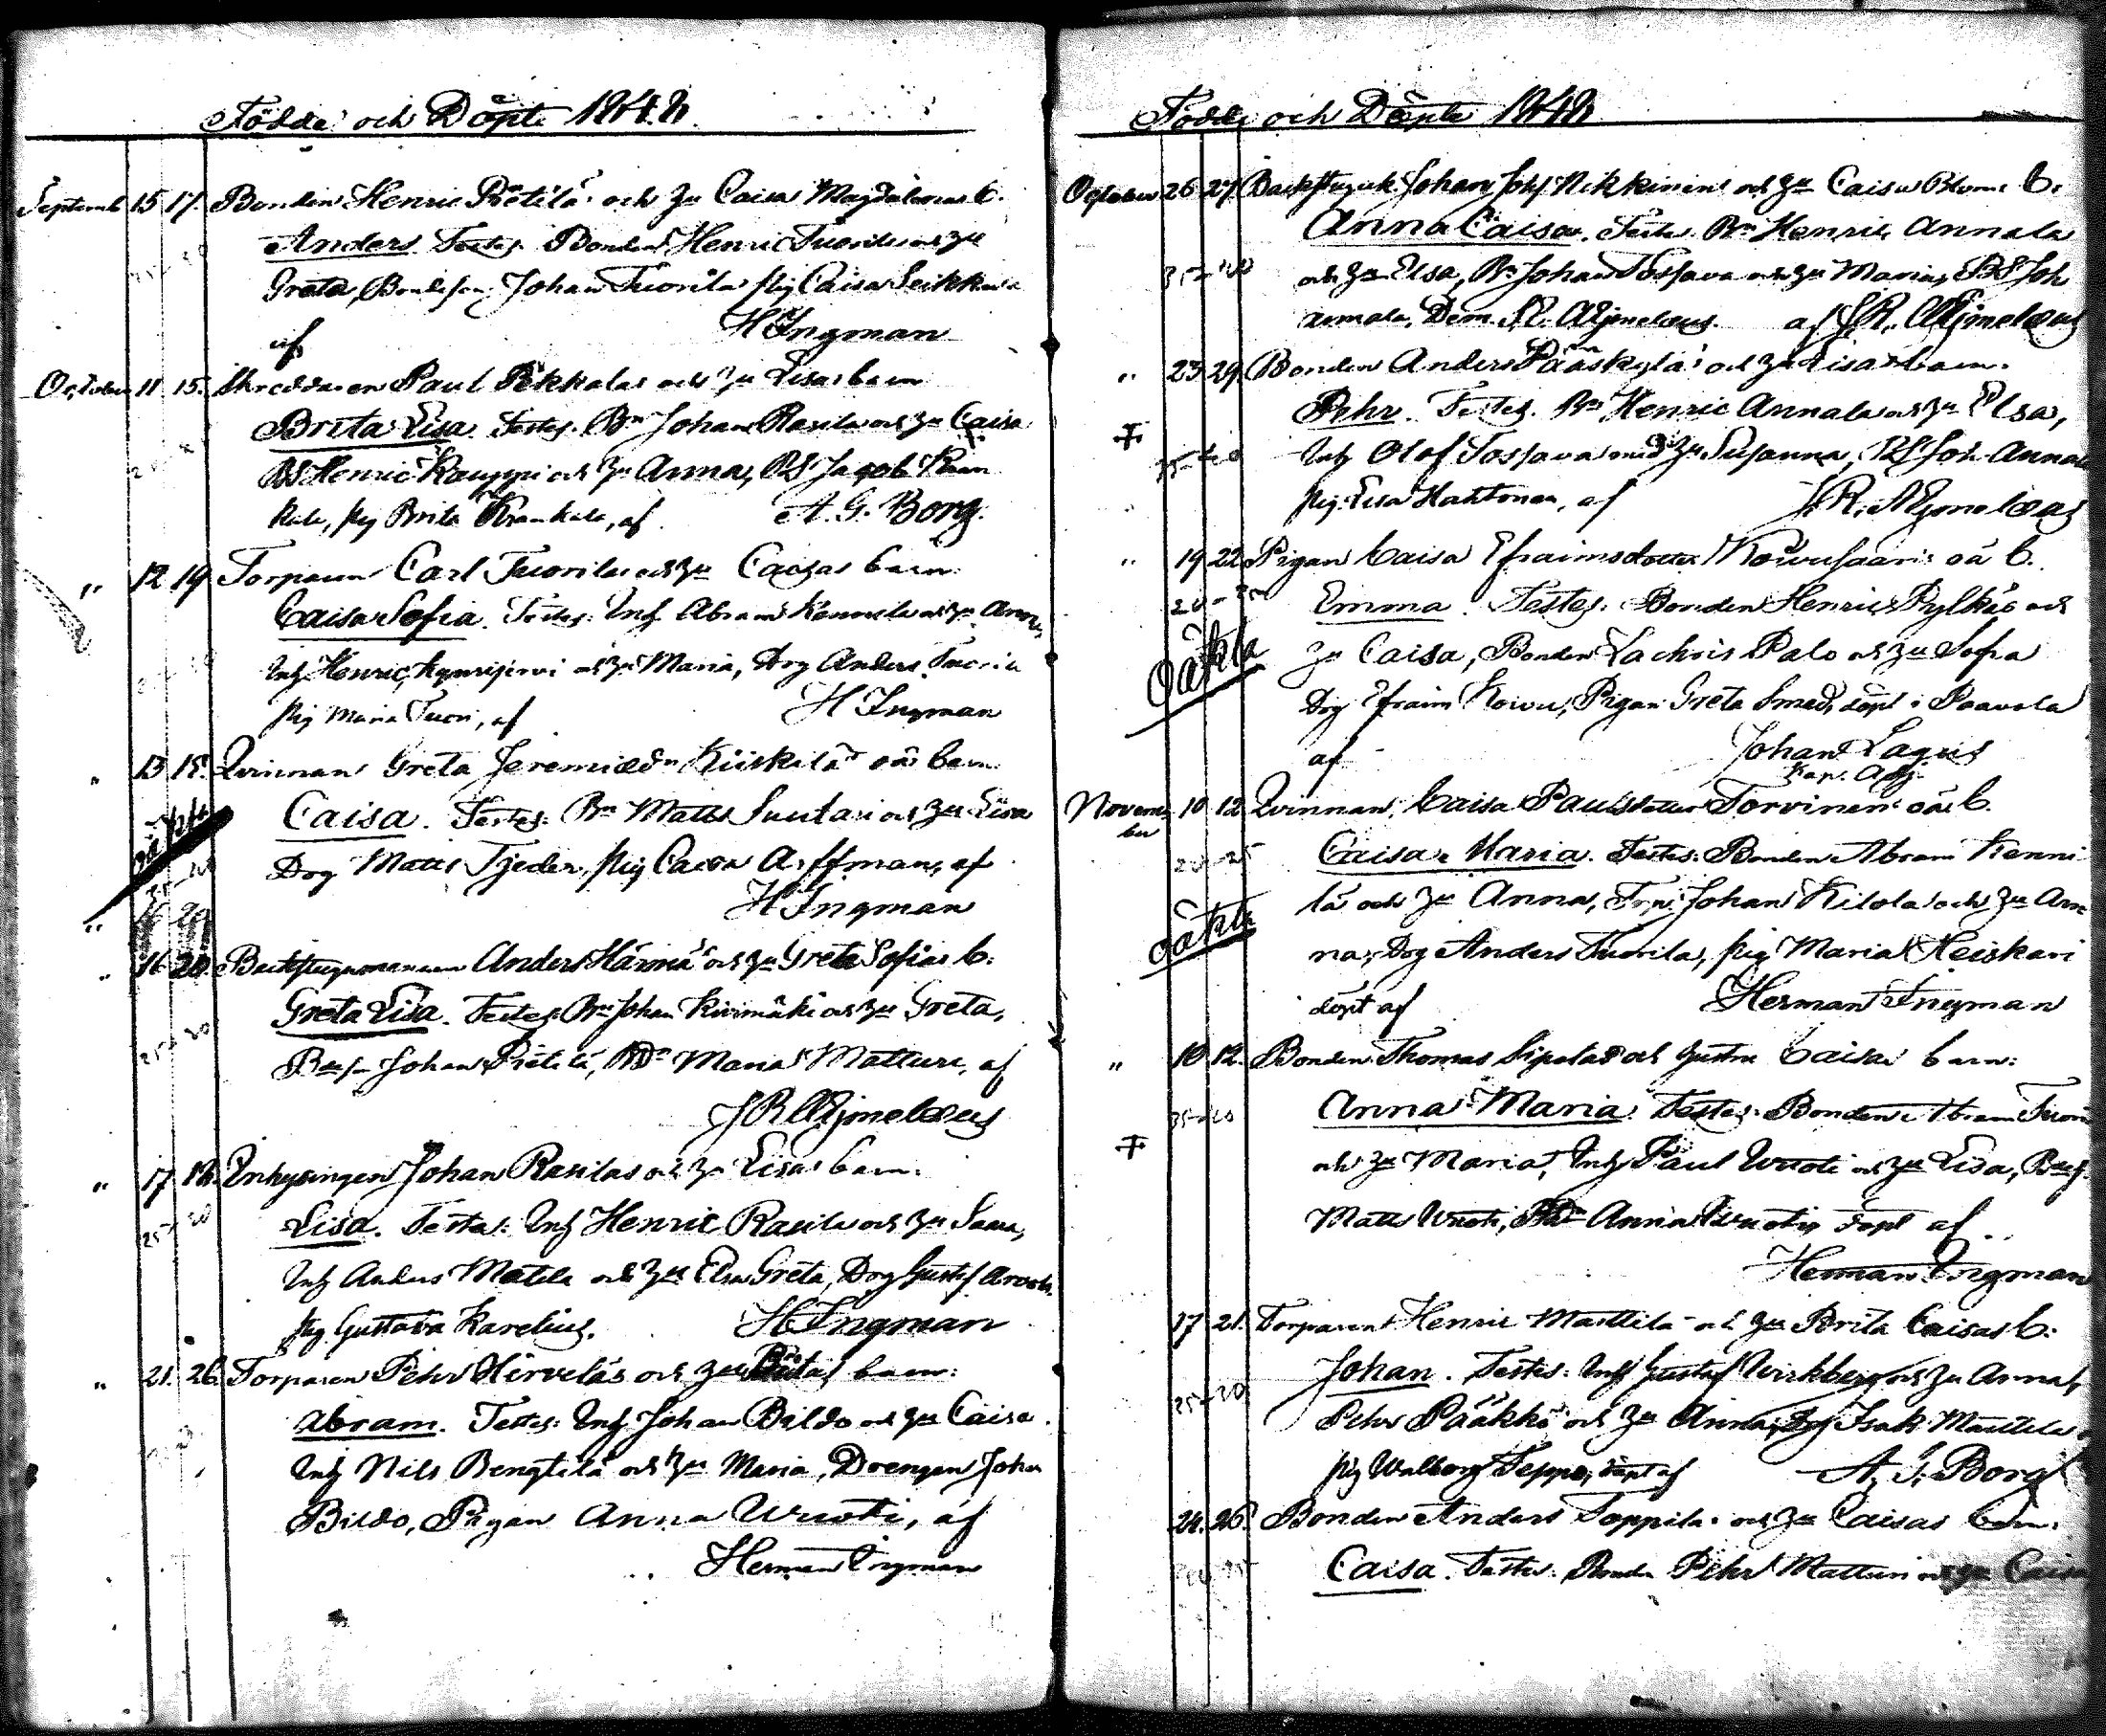 Födde och Döpte 1848.
Septemb 15 17. Bonden Henric Pietilä och hu Caisa Magdalenas b.
Anders. Testes. Bonden Henric Tuorila och hu
Greta, Bondeson Johan Tuorila pig Caisa Leikkari
af H Ingman
October 11 15. Skreddaren Paul Pekkalas och hu Lisas barn
Brita Lisa. Testes. Bn Johan Rasila och hu Caisa
BS Henric Kauppi och hu Anna, BS Jacob Kran
kala, pig Brita Krankala, af A. G. Borg.
" 12 19 Torparen Carl Tuorilas och hu Caisas barn
Caisa Sofia. Testes. Inh Abram Kennilä och hu Anna,
Inh Henric och hu Maria, Drg Anders Tuorila
pig Maria Tuori, af H Ingman
" 13 15. Qvinnan Greta Jeremiædr Kiiskilä oä barn
Caisa. Testes. Bn Matts Suutari och hu Lisa
Drg Matts Tjeder, pig Caisa Arffman, af
H Ingman
" 16 20
" 16 20. Backstugumannen Anders Härmä och hu Greta Sofias b.
25-30 Greta Lisa. Testes. Bn Johan Kivimäki och hu Greta,
Johan Pietilä, Maria Matturi, af
J R Aejmelæus
" 17 18. Inhysingen Johan Rasilas och hu Lisas barn.
25-30 Lisa. Testes. Inh Henric Rasila och hu Saara,
Inh Anders Matila och hu Elsa Greta, Drg Gustaf
pig Gustava Karelius. H Ingman
" 21. 26. Torparen Pehr Hirveläs och hu Britas barn:
Abram. Testes. Inh Johan Bildo och hu Caisa.
Inh Nils Bengtilä och hu Maria, Drengen Johan
Bildo, Pigan Anna Wuoti, af
Herman Ingman
Födde och Döpte 1848
October 26 27 Backstuguk. Johan Johs Nikkinens och hu Caisas b.
Anna Caisa. Testes Bn Henric Annala
35-40 och hu Elsa, Bn Johan Tossava och hu Maria, BS Joh
Annala, Dem. Aejmelæus. af J R. Aejmelæus
" 23 29. Bonden Anders Pääskylä och hu Lisas barn.
Pehr. Testes. Bn Henric Annala och hu Elsa,
35-40 Inh Olof Tossava med hu Susanna, BS Joh Annala
pig Lisa Hahtonen, af J. R. Aejmelæus
" 19 22 Pigan Caisa Efraimsdotter Koivusaari oä b.
Emma. Testes. Bonden Henric Pylkäs och
oäkta hu Caisa, Bonden Zachris Palo och hu Sofia
Drg Efraim Koivu, Pigan Greta Smed, döpt i Paavola
af Johan Lagus
Kap. Adj.
Novem- 10 12 Qvinnan Caisa Paulsdotter Torvinens oä b.
ber
20-25 Caisa Maria. Testes. Bonden Abram Kenni
lä och hu Anna, Torp. Johan Kilola och hu An
oäkta na, Drg Anders Tuorila, pig Maria Heiskari
döpt af Herman Ingman
" 10 12. Bonden Thomas Sipolas och hustru Caisas barn:
35-40 Anna Maria. Testes. Bonden Abram Tuori
och hu Maria, Inh Paul Wuoti och hu Lisa,
Matts Wuoti, Anna Wuoti, döpt af
Herman Ingman
17 21. Torparen Henric Marttila och hu Brita Caisas b:
25-30 Johan. Testes. Inh Gustaf Wirkberg och hu Anna,
Pehr Pääkkö och hu Anna, Drg Isak Marttila,
pig Walborg Seppo, döpt af A. G. Borg
24. 26. Bonden Anders Soppila och hu Caisas barn.
Caisa. Testes. Bonden Pehr Matturi och hu Caisa